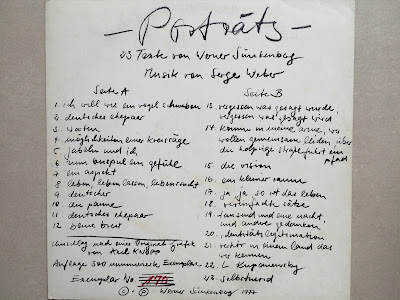 - Porträts -
23 Texte von Werner Sinkenberg
Musik von Serge Weber
Seite A
1. ich will wie ein vogel schweben
2. deutsches ehepaar
3. warten
4. möglichkeiten einer kreissäge
5. jabelm und ich
6. zum beispiel ein gefühl
7. ein aspekt
8. leben, leben lassen, lebenssucht
9. deutscher
10. die panne
11. deutsches ehepaar
12. keine brest
Seite B
13. vergessen was gesagt wurde,
vergessen was gesagt wird
14. komm in meine arme, wir
wollen gemeinsam leiden über
die holprige
pfad
15. die vision
16. ein kleiner mann
17. ja ja so ist das leben
18. verimpfte sätze
19. tausend und eine nacht,
und andre gedanken
20. identitätslegitimation
21. rektor in einem land das
wir kennen
22. L Krupanewsky
23. Selbstmord
Umschlag nach einer Original Grafik
von Karl
Auflage 500 nummerierte Exemplare
Exemplar No
© + ℗ Werner Sinkenberg 1977